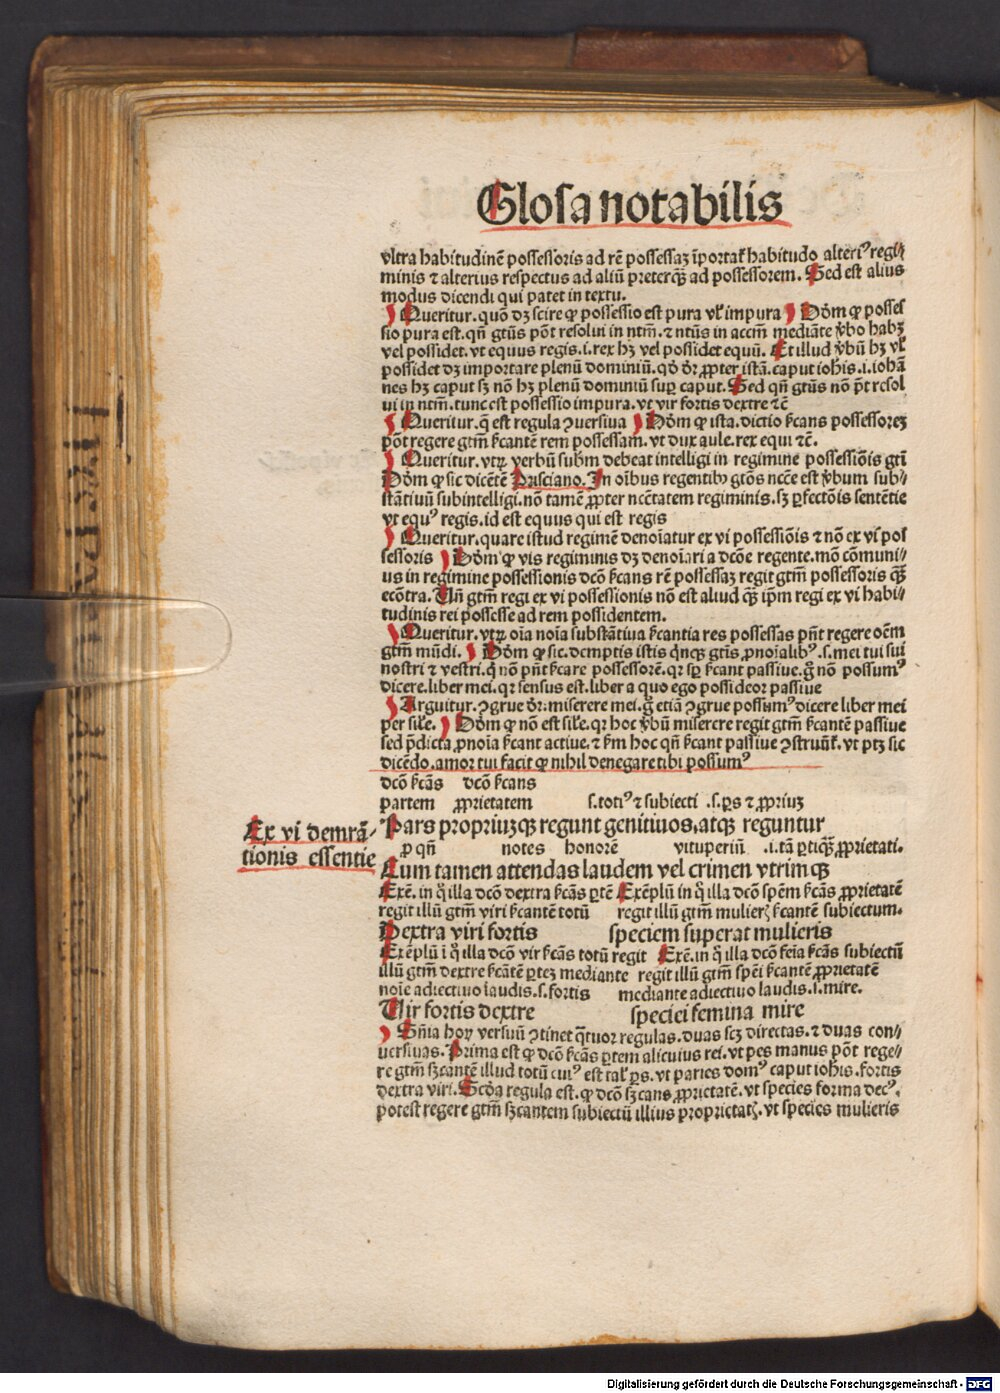 Glosa notabilis
vltra habitudinē possessoris ad rē possessaʒ īportat habitudo alteriꝰ regi⸗
minis ⁊ alterius respectus ad aliū preterqȝ ad possessorem. Sed est alius
modus dicendi qui patet in textu.
Queritur. quō dʒ scire ꝙ possessio est pura vł impura Dōm ꝙ posses
sio pura est. qn̄ gtūs pōt resolui in ntm̄. ⁊ ntūs in accm̄ mediāte ꝟbo habʒ
vel possidet. vt equus regis .i. rex hʒ vel possidet equū. Et illud ꝟbū hʒ vł
possidet dʒ importare plenū dominiū. qd̄ dr̄ ꝓpter istā. caput iohis .i. iohā
nes hʒ caput sʒ nō hʒ plenū dominiū suꝑ caput. Sed qn̄ gtūs nō pōt resol
ui in ntm̄. tunc est possessio impura. vt vir fortis dextre ⁊c̄
Queritur. q̄ est regula ꝯuersiua Dōm ꝙ ista. dictio ſcans possessoreʒ
pōt regere gtm̄ ſcantē rem possessam. vt dux aule. rex equi ⁊c̄.
Queritur. vtrꝫ verbū subm̄ debeat intelligi in regimine possessiōis gtī
Dōm ꝙ sic dicēte Prisciano. In oībus regentibꝰ gtōs ncc̄e est ꝟbum sub⸗
stātiuū subintelligi. nō tamē ꝓpter ncc̄tatem regiminis. sʒ ꝑfectōis sententie
vt equꝰ regis. id est equus qui est regis
Queritur. quare istud regimē denoīatur ex vi possessiōis ⁊ nō ex vi pos
sessoris Dōm ꝙ vis regiminis dʒ denoīari a dcōe regente. mō cōmuni⸗
us in regimine possessionis dcō ſcans rē possessaʒ regit gtm̄ possessoris qȝ
ecōtra. Un̄ gtm̄ regi ex vi possessionis nō est aliud qȝ ip̄m regi ex vi habi⸗
tudinis rei possesse ad rem possidentem.
Queritur. vtrꝫ oīa noīa substātiua ſcantia res possessas pn̄t regere oēm
gtm̄ mūdi. Dōm ꝙ sic. demptis istis qnqꝫ gtīs ꝓnoīalibꝰ .s. mei tui sui
nostri ⁊ vestri. q̄ nō pn̄t ſcare possessorē. qꝛ sꝑ ſcant passiue. g̊ nō possumꝰ
dicere. liber mei. qꝛ sensus est. liber a quo ego possideor passiue
Arguitur. ꝯgrue dr̄: miserere mei. g̊ etiā ꝯgrue possumꝰ dicere liber mei
per sile. Dōm ꝙ nō est sile. qꝛ hoc ꝟbū miserere regit gtm̄ ſcantē passiue
sed p̄dicta ꝓnoīa ſcant actiue. ⁊ ſm hoc qn̄ ſcant passiue ꝯstruūt. vt ptʒ sic
dicēdo. amor tui facit ꝙ nihil denegare tibi possumꝰ
dcō ſcās dcō ſcans
partem ꝓprietatem s. totiꝰ ⁊ subiecti .s. ꝑs ⁊ ꝓpriuʒ
Ex vi demrā⸗
tionis essentie
Pars propriuʒqꝫ regunt genitiuos, atqꝫ reguntur
ꝓ qn̄ notes honorē vituperiū .i. tā ꝑtiqꝫ ꝓprietati.
Cum tamen attendas laudem vel crimen vtrimqꝫ
Exē. in q̊ illa dcō dextra ſcās ꝑtē Exēplū in q̊ illa dcō spēm ſcās ꝓprietatē
regit illū gtm̄ viri ſcantē totū regit illū gtm̄ mulierꝭ ſcantē subiectum.
Dextra viri fortis speciem superat mulieris
Exēplū ī q̊ illa dcō vir ſcās totū regit Exē. in q̊ illa dcō feīa ſcās subiectū
illū gtm̄ dextre ſcātē ꝑteʒ mediante regit illū gtm̄ spēi ſcantē ꝓprietatē
noīe adiectiuo laudis. s. fortis mediante adiectiuo laudis. s. mire.
Uir fortis dextre speciei femina mire
Snīa hoꝝ versuū ꝯtinet qtuor regulas. duas scʒ directas. ⁊ duas con⸗
uersiuas. Prima est ꝙ dcō ſcās ꝑtem alicuius rei. vt pes manus pōt rege⸗
re gtm̄ sʒcantē illud totū cuiꝰ est tał ꝑs. vt paries domꝰ caput iohis. fortis
dextra viri. Scd̄a regula est. ꝙ dcō sʒcans ꝓprietatē. vt species forma decꝰ.
potest regere gtm̄ sʒcantem subiectū illius proprietatꝭ. vt species mulieris
Digitalisierung gefördert durch die Deutsche Forschungsgemeinschaft - DFG